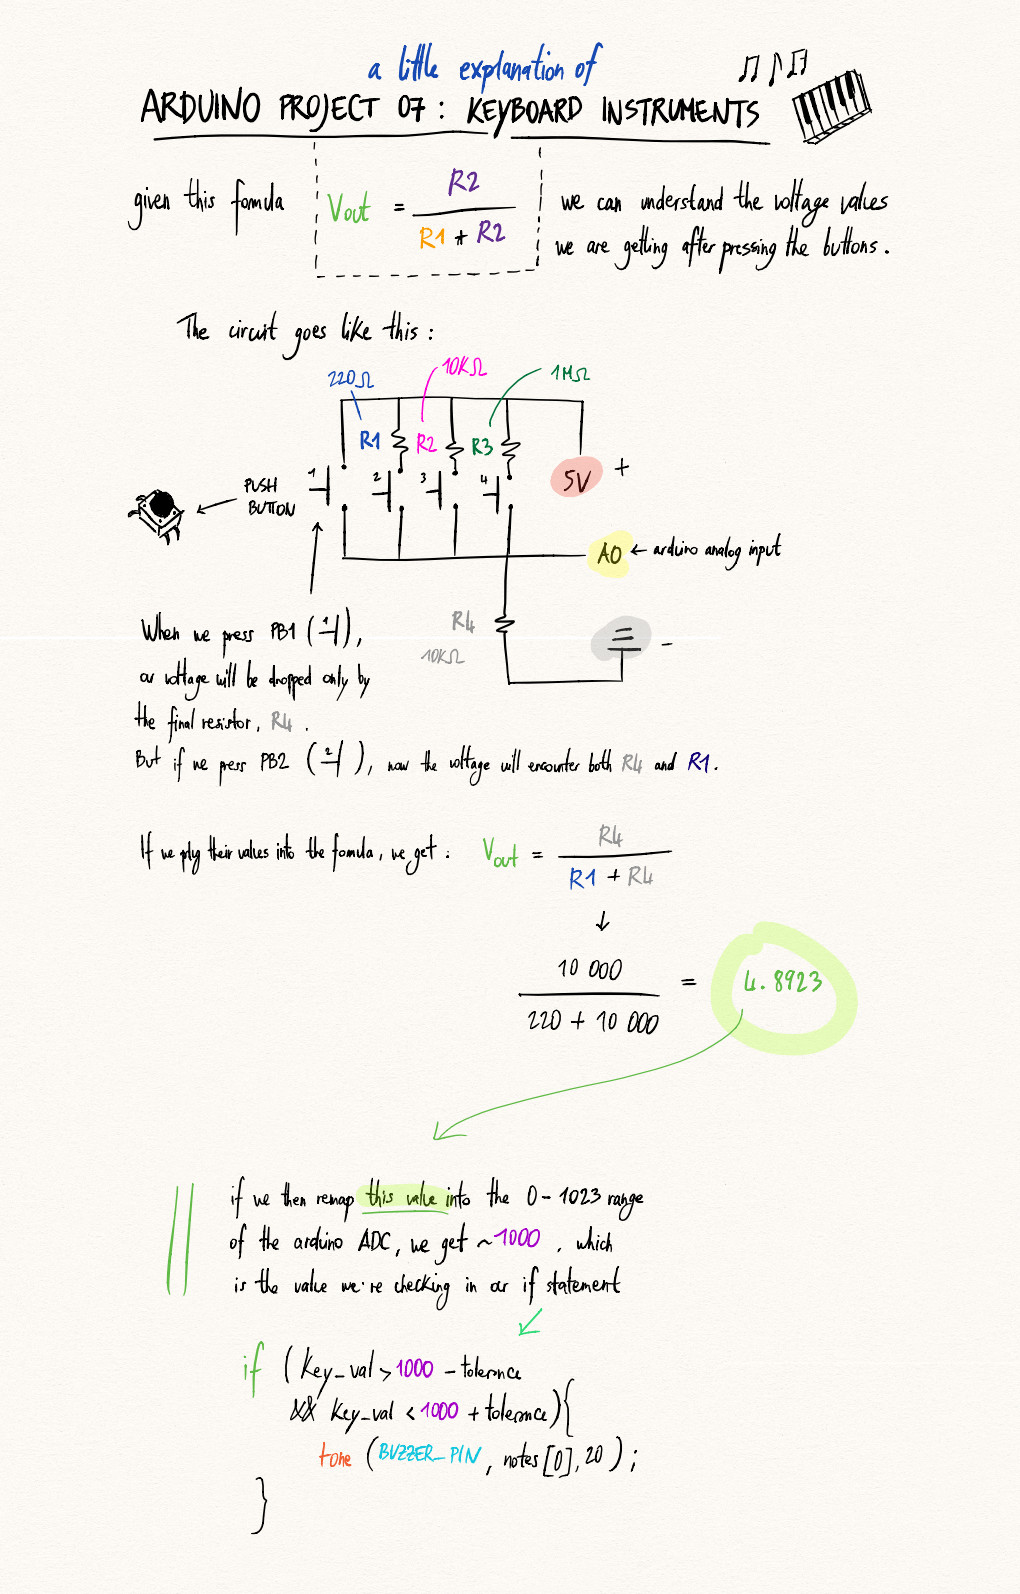 a little explanation of
ARDUINO PROJECT 07: KEYBOARD INSTRUMENTS
given this fomula
Vout = R2 / R1 + R2
we can understand the voltage values
we are getting after pressing the buttons.
The circuit goes like this:
220Ω 10KΩ 1MΩ
R1 R2 R3
1 2 3 4
5V +
PUSH
BUTTON
A0 ← arduino analog input
R4
10KΩ
-
When we press PB1 (1),
our voltage will be dropped only by
the final resistor, R4.
But if we press PB2 (2), now the voltage will encounter both R4 and R1.
If we plug their values into the fomula, we get: Vout = R4 / R1 + R4
↓
10 000 / 220 + 10 000 = 4.8923
if we then remap this value into the 0-1023 range
of the arduino ADC, we get ~1000, which
is the value we're checking in our if statement
if (key_val > 1000 - tolerance
&& key_val < 1000 + tolerance){
tone (BUZZER_PIN, notes[0], 20);
}